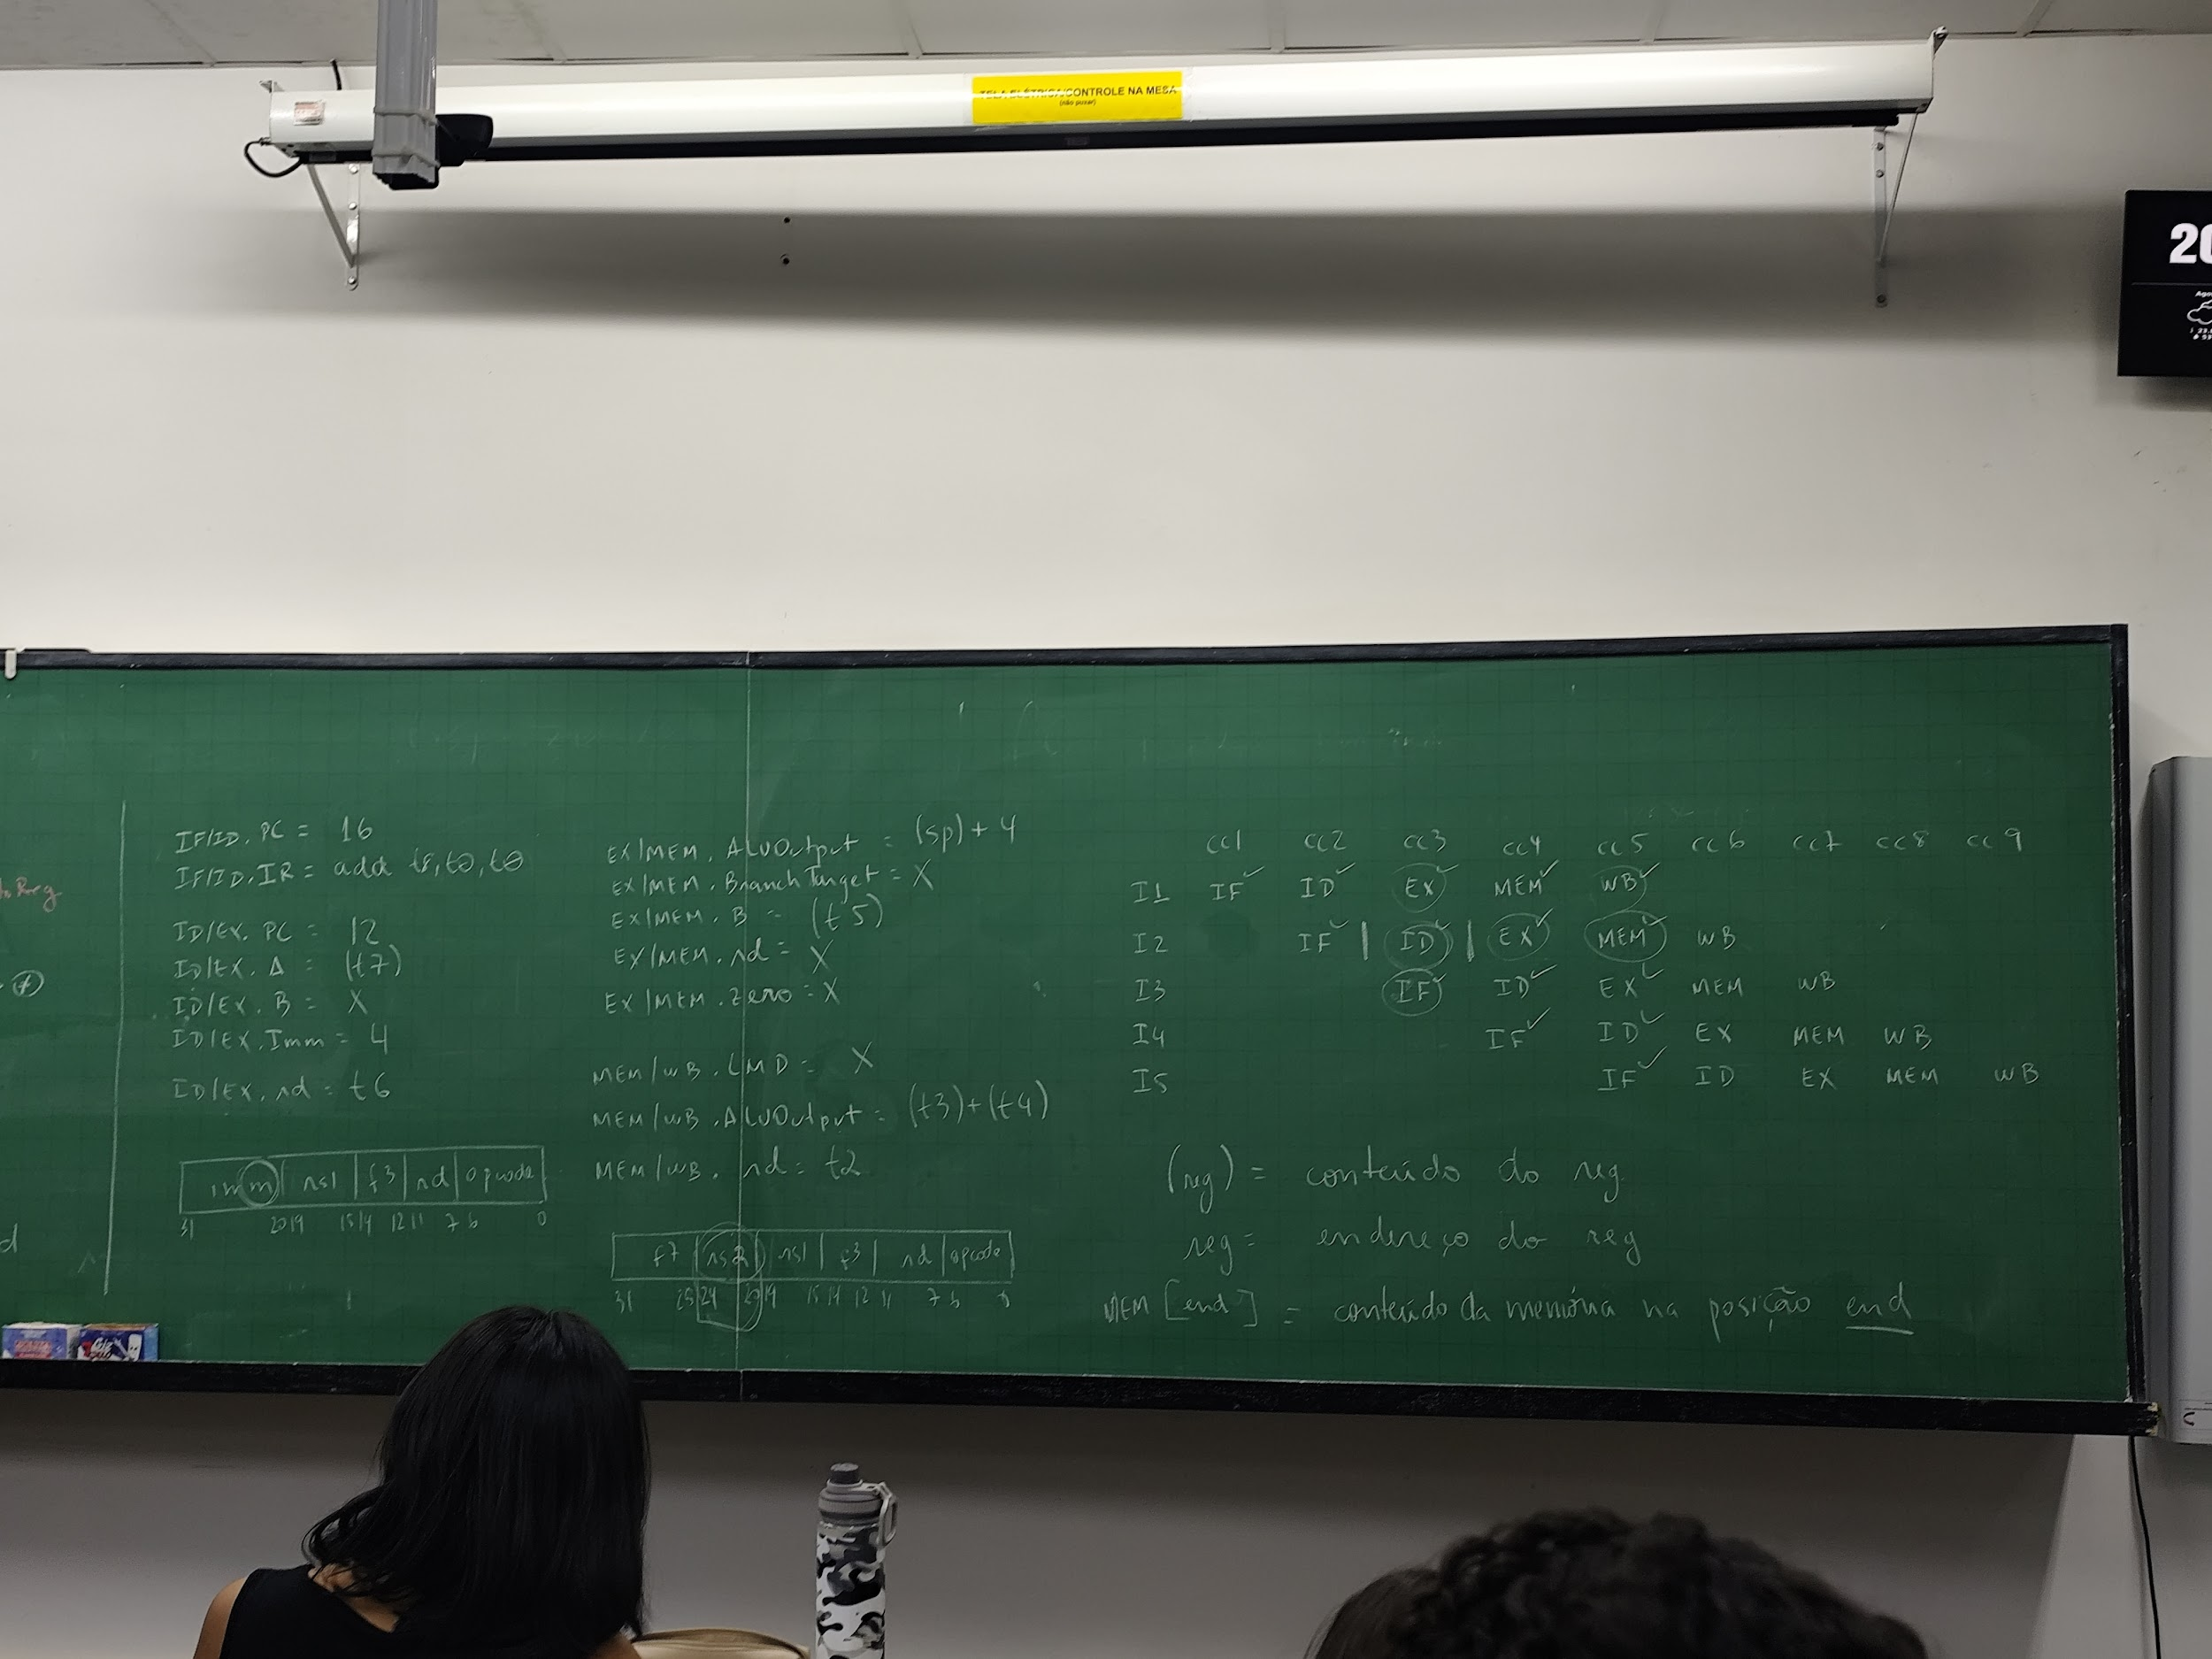 TELA ELÉTRICA/CONTROLE NA MESA
(não puxar)
20
Reg
d
IF/ID. PC = 16
IF/ID. IR = add t8, t0, t0
ID/EX. PC = 12
ID/EX. A = (t7)
ID/EX. B = X
ID/EX. Imm = 4
ID/EX. rd = t6
imm rs1 f3 rd opcode
31 20 19 15 14 12 11 7 6 0
EX/MEM. ALUOutput = (sp) + 4
EX/MEM. Branch Target = X
EX/MEM. B = (t5)
EX/MEM. rd = X
EX/MEM. Zero = X
MEM/WB. LMD = X
MEM/WB. ALUOutput = (t3)+(t4)
MEM/WB. rd = t2
f7 rs2 rs1 f3 rd opcode
31 25 24 20 19 15 14 12 11 7 6 0
cc1 cc2 cc3 cc4 cc5 cc6 cc7 cc8 cc9
I1 IF ID EX MEM WB
I2 IF | ID | EX MEM WB
I3 IF ID EX MEM WB
I4 IF ID EX MEM WB
I5 IF ID EX MEM WB
(reg) = conteúdo do reg.
reg = endereço do reg
MEM [end] = conteúdo da memória na posição end